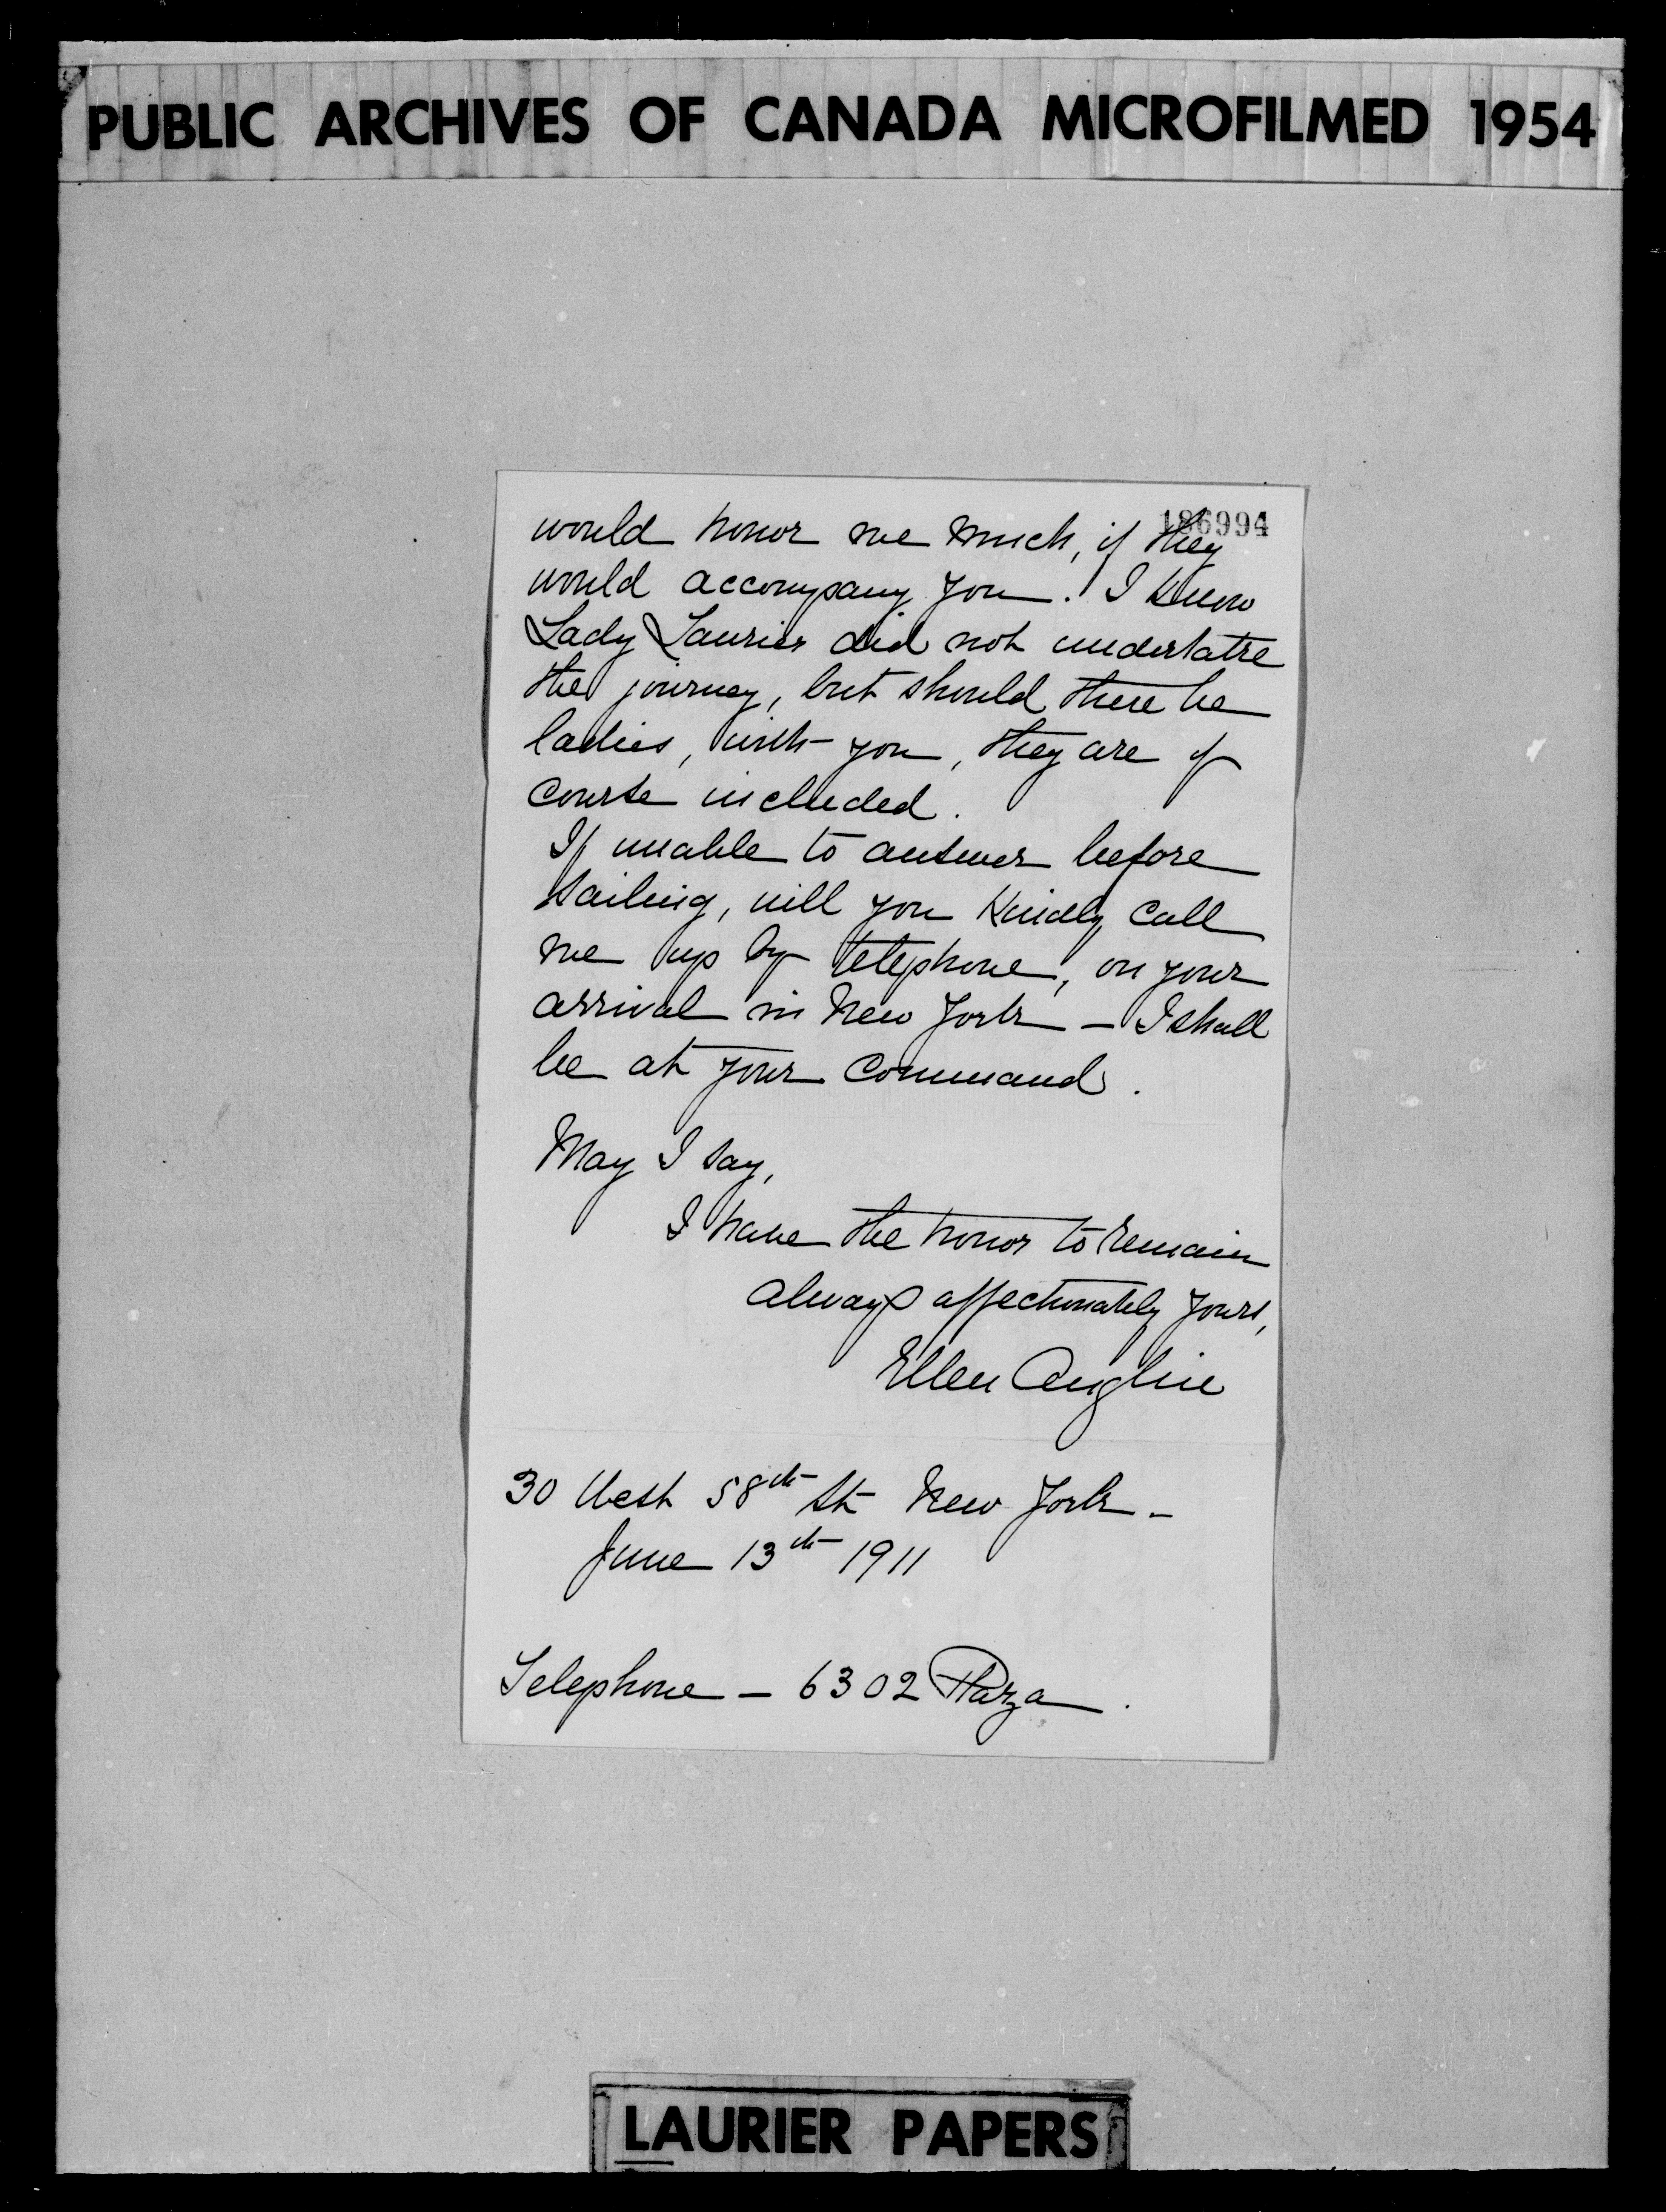 PUBLIC ARCHIVES OF CANADA MICROFILMED 1954
186994
would honor me much, if they
would accompany you. I know
Lady Laurier did not undertake
the journey, but should there be
ladies, with you, they are of
course included.
If unable to answer before
sailing, will you kindly call
me up by telephone, on your
arrival in New York – I shall
be at your command.
May I say,
I have the honor to remain
always affectionately yours,
Ellen Anglin
30 West 58th St New York –
June 13th 1911
Telephone – 6302 Plaza.
LAURIER PAPERS